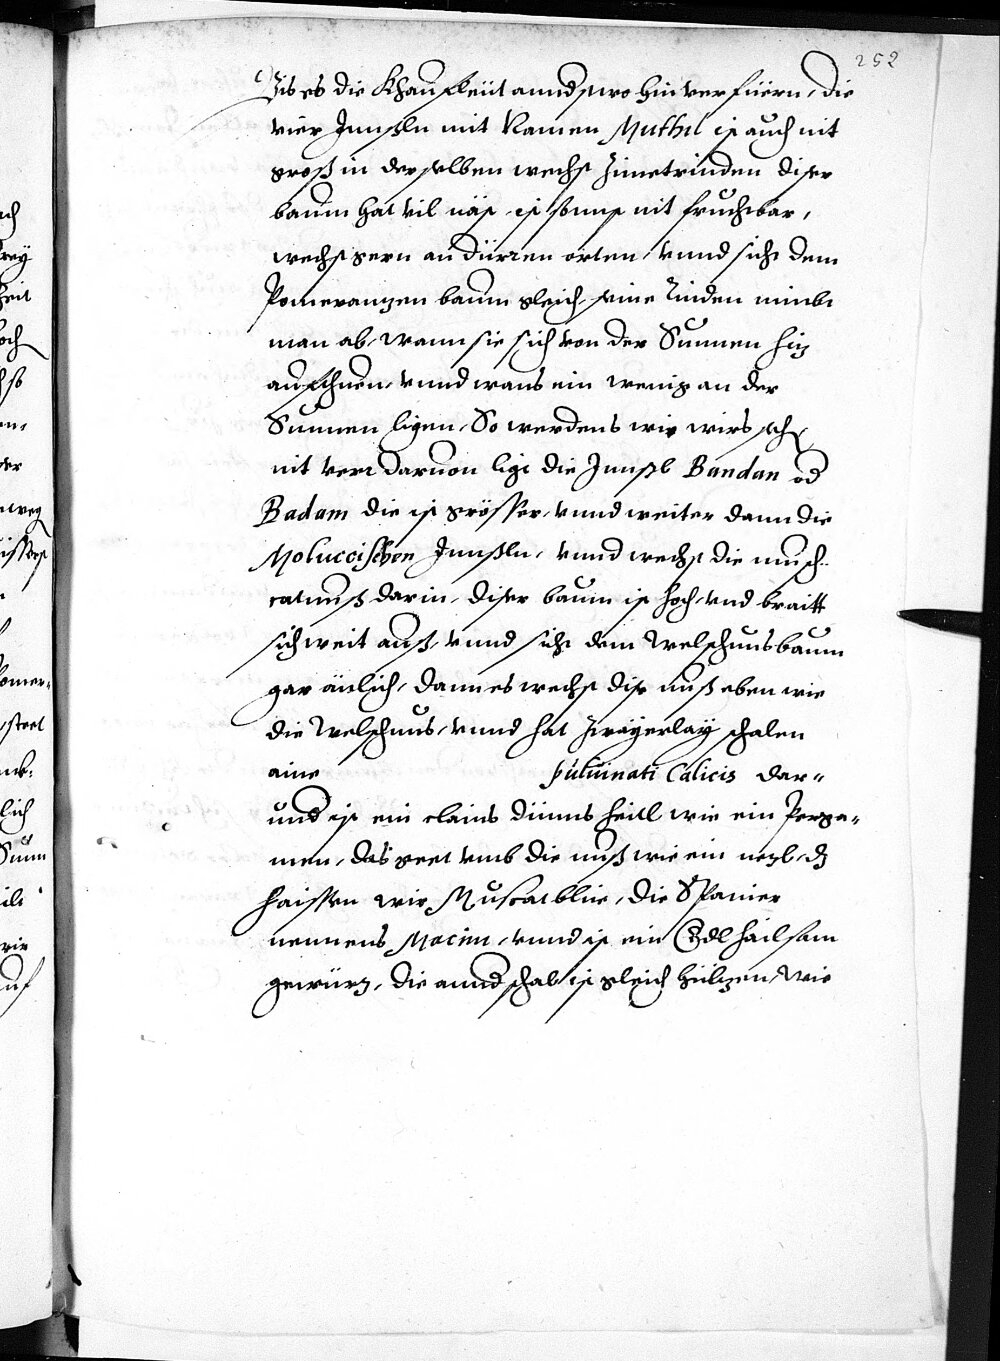 252
Bis es die Khaufleüt anndstwo hin verfüern, die
vier Jnnßln mit Namen Muthil ist auch nit
groß in derselben wechst Zimetrinden diser
baum hat vil näst ist sonnst nit fruchtbar,
wechst gern an dürren orten, vnnd sicht dem
Pomeranzen baum gleich, seine Rinden nimbt
man ab, wann sie sich von der Sunnen hiz
aufthuen, vnnd wans ein wenig an der
Sunnen ligen, So werdens wie wirs sech
nit verr daruon ligt die Jnnßl Bandan od
Badam die ist grösser, vnnd weiter dann die
Moluccischen Jnnßln, vnnd wechst die musch-
catnuß darin, diser baum ist hoch, vnd braitt
sich weit auß, vnnd sicht dem Welschnusbaum
gar änlich, dann es wechst dise nuß eben wie
die Welschnus, vnnd hat zwayerlay schalen
aine puluinati Calicis dar-
und ist ein clains dünns heitl wie ein Perga-
men, das geet vmb die nuß wie ein nezl, dz
haissen wir Muscatblüe, die Spanier
nennens Macim, vnnd ist ein Edl hailsam
gewürz, die annd schal ist gleich hülzen, wie